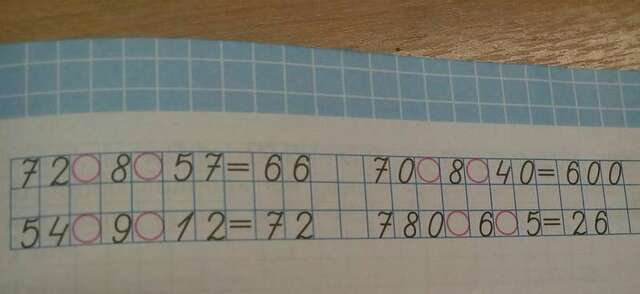 72○8○57=66 70○8○40=600
54○9○12=72 780○6○5=26